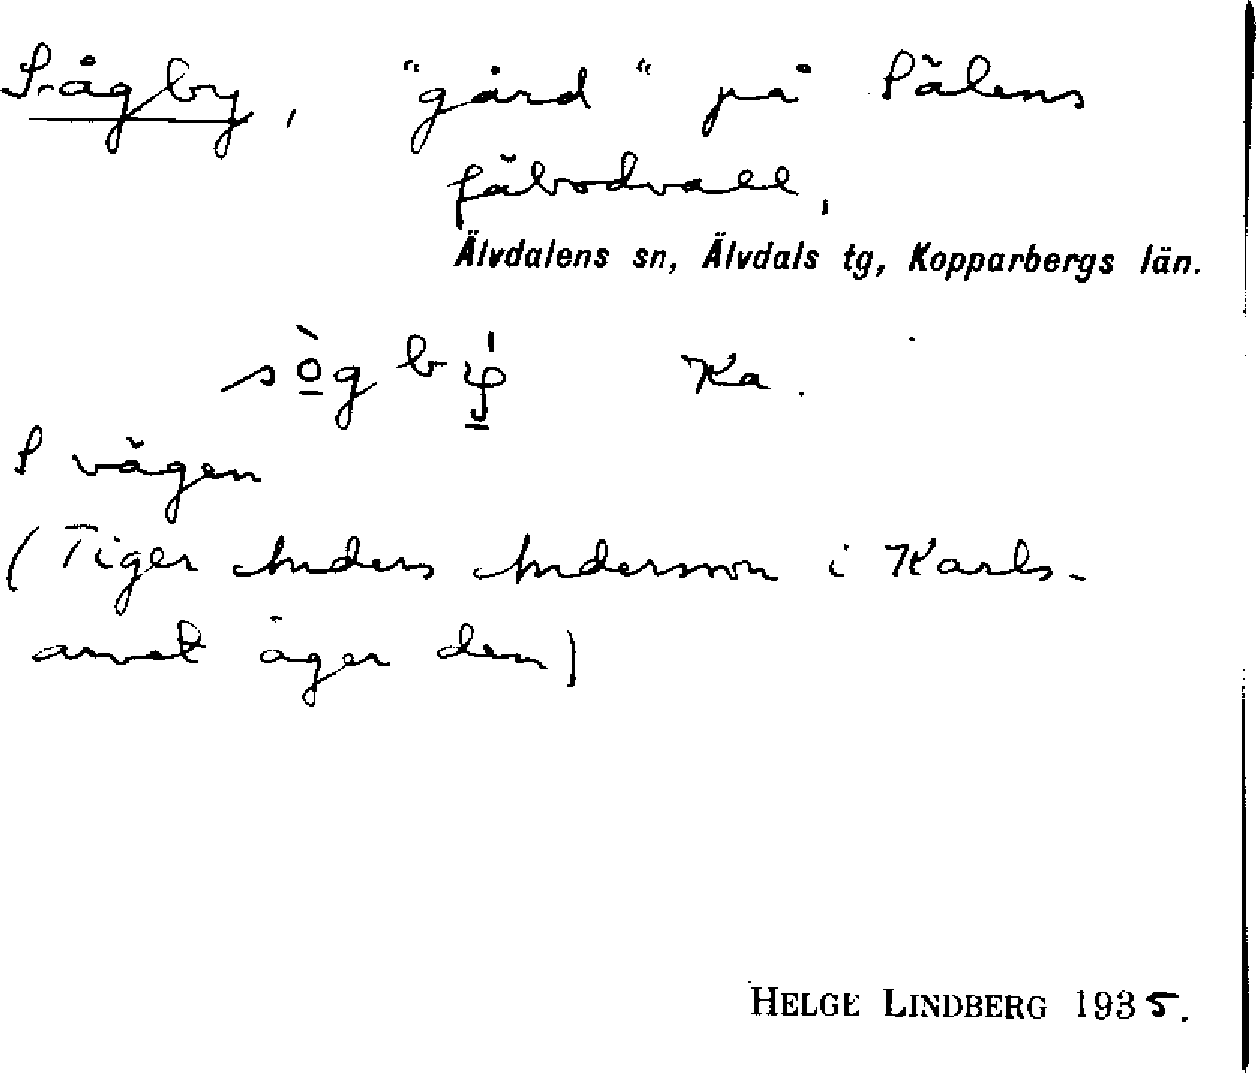 Sågby, "gård" på Sälens
fäbodvall,
Älvdalens sn, Älvdals tg, Kopparbergs län.
Ka.
S vägen
(Tiger Anders Andersson i Karls-
arvet äger den)
HELGE LINDBERG 1935.